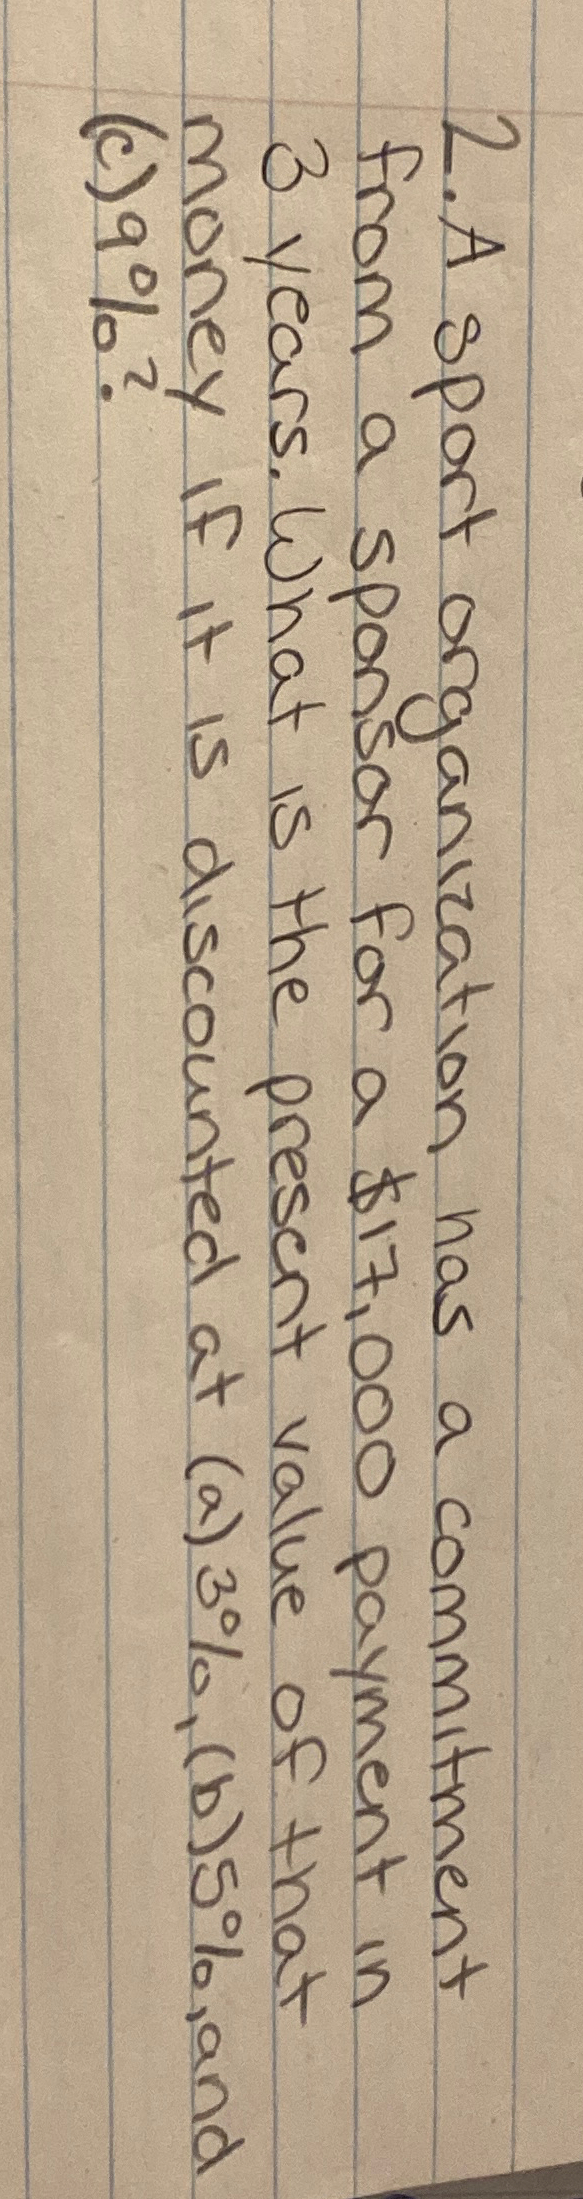 2. A sport organization has a commitment
from a sponsor for a $17,000 payment in
3 years. What is the present value of that
money if it is discounted at (a) 3%, (b) 5%, and
(c) 9%?